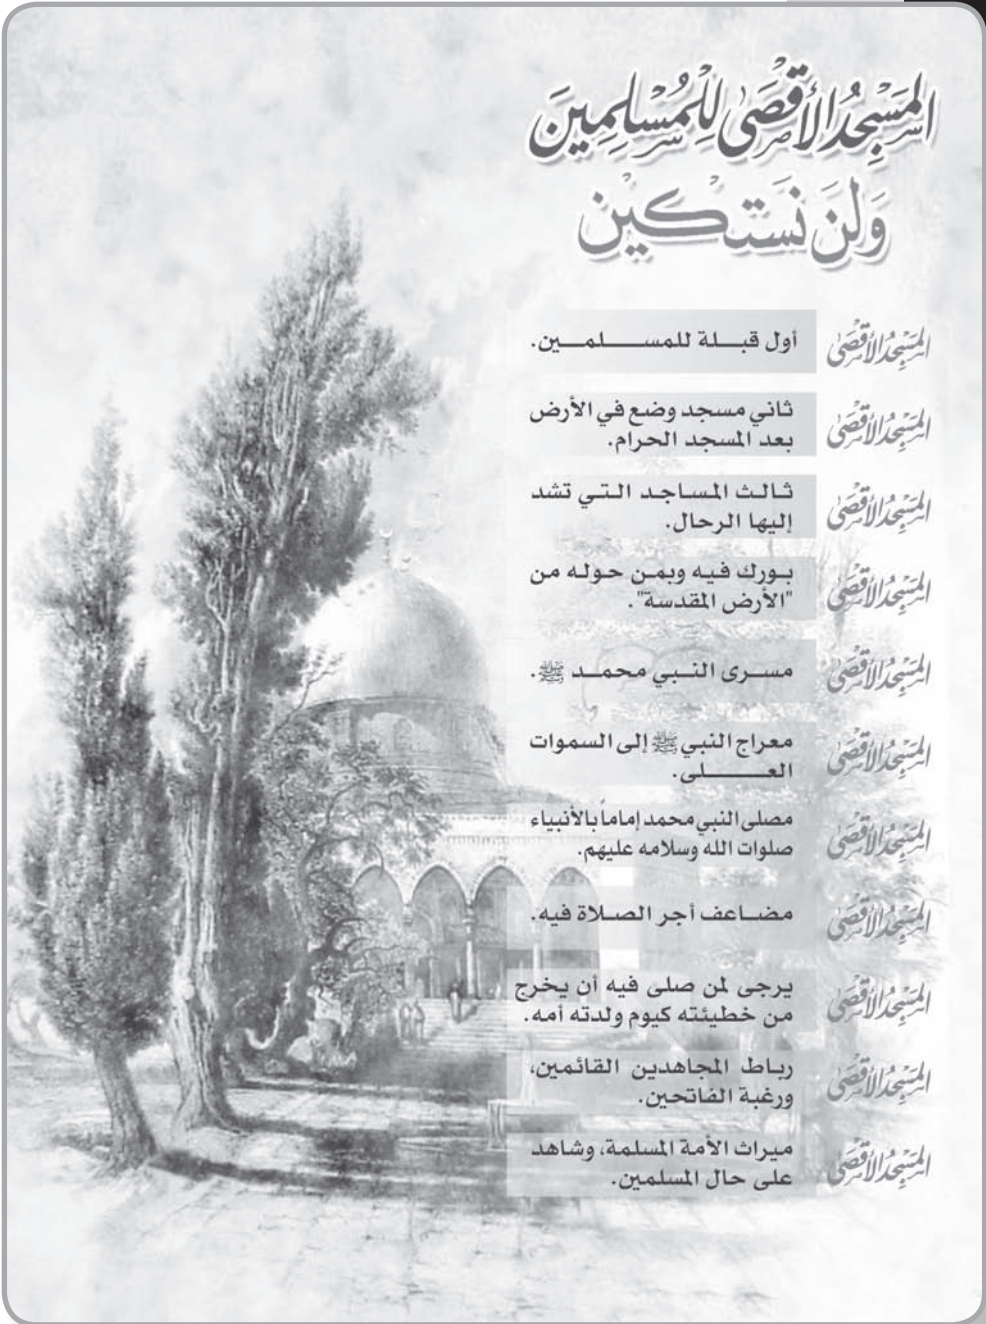 المَسْجِدُ الأَقْصَى لِلْمُسْلِمِينَ
وَلَن نَسْتَكِين
المَسْجِدُ الأَقْصَى أول قبـــلة للمســـــلمـــين.
المَسْجِدُ الأَقْصَى ثاني مسجد وضع في الأرض
بعد المسجد الحرام.
المَسْجِدُ الأَقْصَى ثـالـث المسـاجـد الـتـي تشد
إليها الرحال.
المَسْجِدُ الأَقْصَى بـورك فـيـه وبمـن حـولـه مـن
"الأرض المقدسة".
المَسْجِدُ الأَقْصَى مســرى النــبي محمــد ﷺ.
المَسْجِدُ الأَقْصَى معراج النبي ﷺ إلى السموات
العـــــــلى.
المَسْجِدُ الأَقْصَى مصلى النبي محمد إماماً بالأنبياء
صلوات الله وسلامه عليهم.
المَسْجِدُ الأَقْصَى مضــاعف أجر الصــلاة فيه.
المَسْجِدُ الأَقْصَى يرجى لمن صلى فيه أن يخرج
من خطيئته كيوم ولدته أمه.
المَسْجِدُ الأَقْصَى ربـاط المجاهدين القائمين،
ورغبة الفاتحين.
المَسْجِدُ الأَقْصَى ميراث الأمة المسلمة، وشاهد
على حال المسلمين.